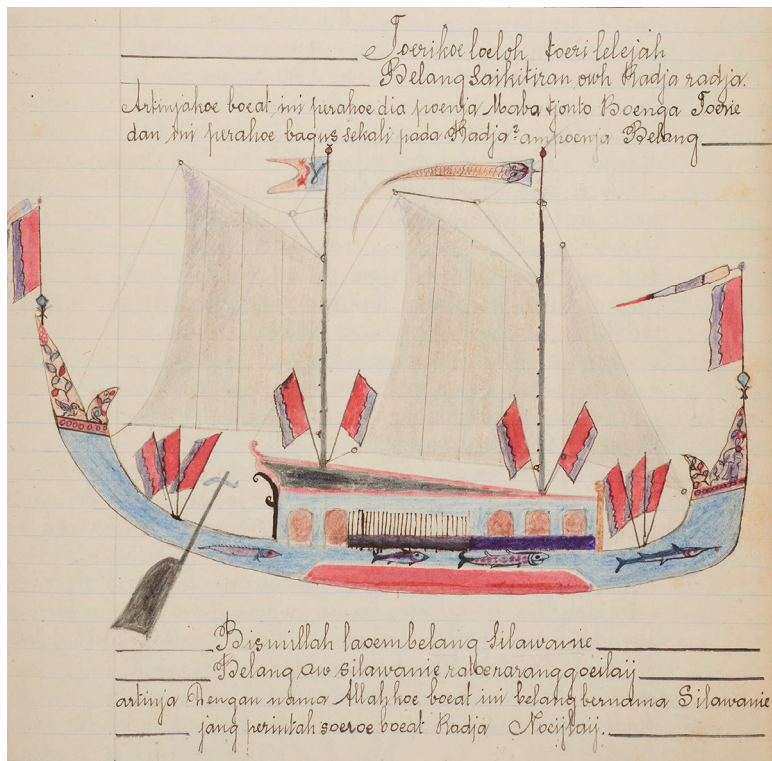 Toerikoe loeloh, toeri lelejah
Belang saikitiran owh Radja radja.
Artinjakoe boeat ini perahoe dia poenja Maba tjonto Boenga Toerie
dan ini perahoe bagus sekali pada Radja² ampoenja Belang
Bismillah laoembelang Silawanie
Belang aw silawanie ratoeraranggoeilaij
artinja Dengan nama Allah koe boeat ini belang bernama Silawanie
jang perintah soeroe boeat Radja Noeijlaij.